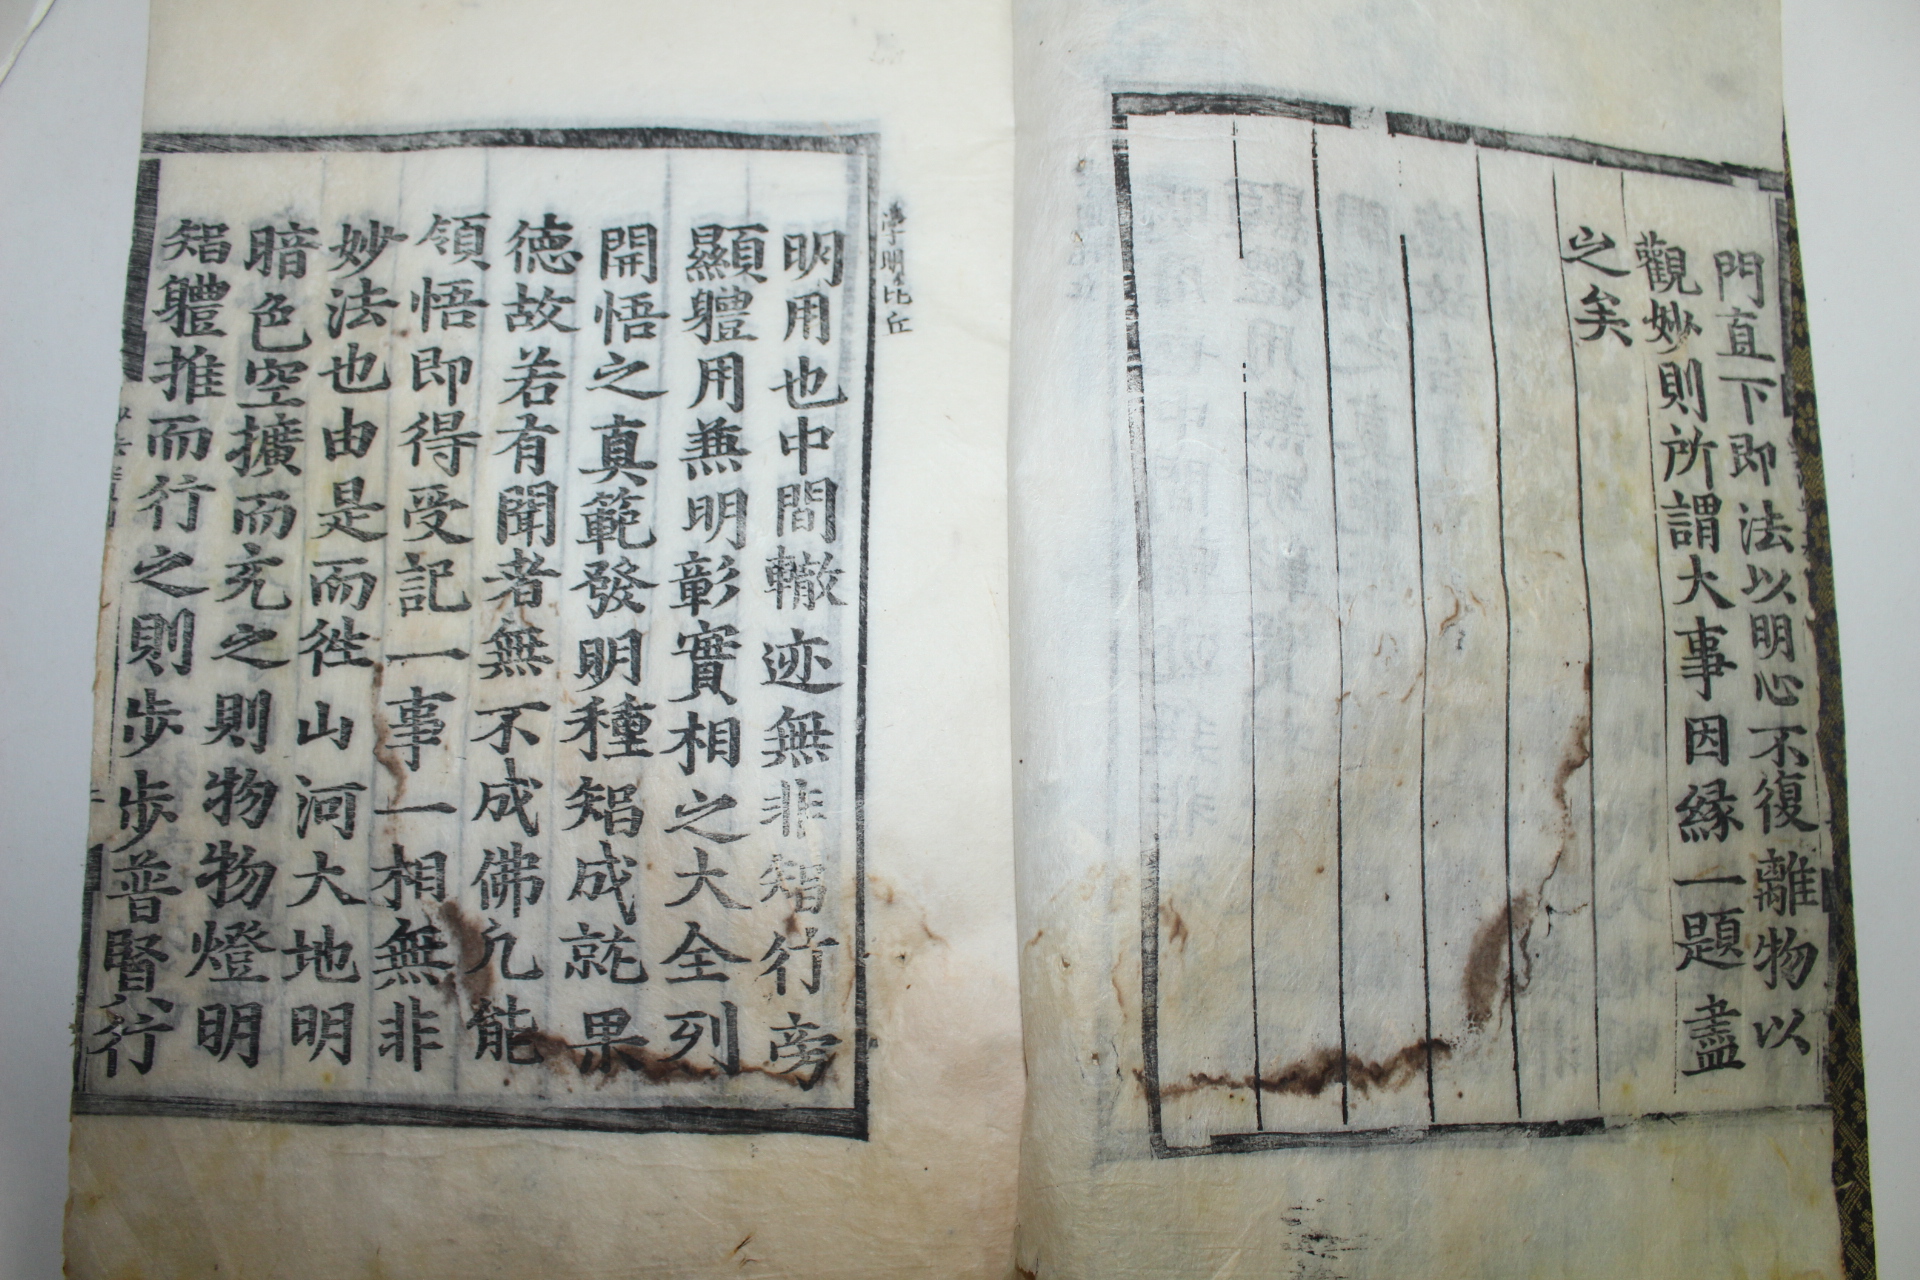 門直下即法以明心不復離物以
觀妙則所謂大事因緣一題盡
之矣
學明比丘
明用也中間轍迹無非智行旁
顯軆用兼明彰實相之大全列
開悟之真範發明種智成就果
德故若有聞者無不成佛凢能
領悟即得受記一事一相無非
妙法也由是而徃山河大地明
暗色空擴而充之則物物燈明
智軆推而行之則步步普賢行